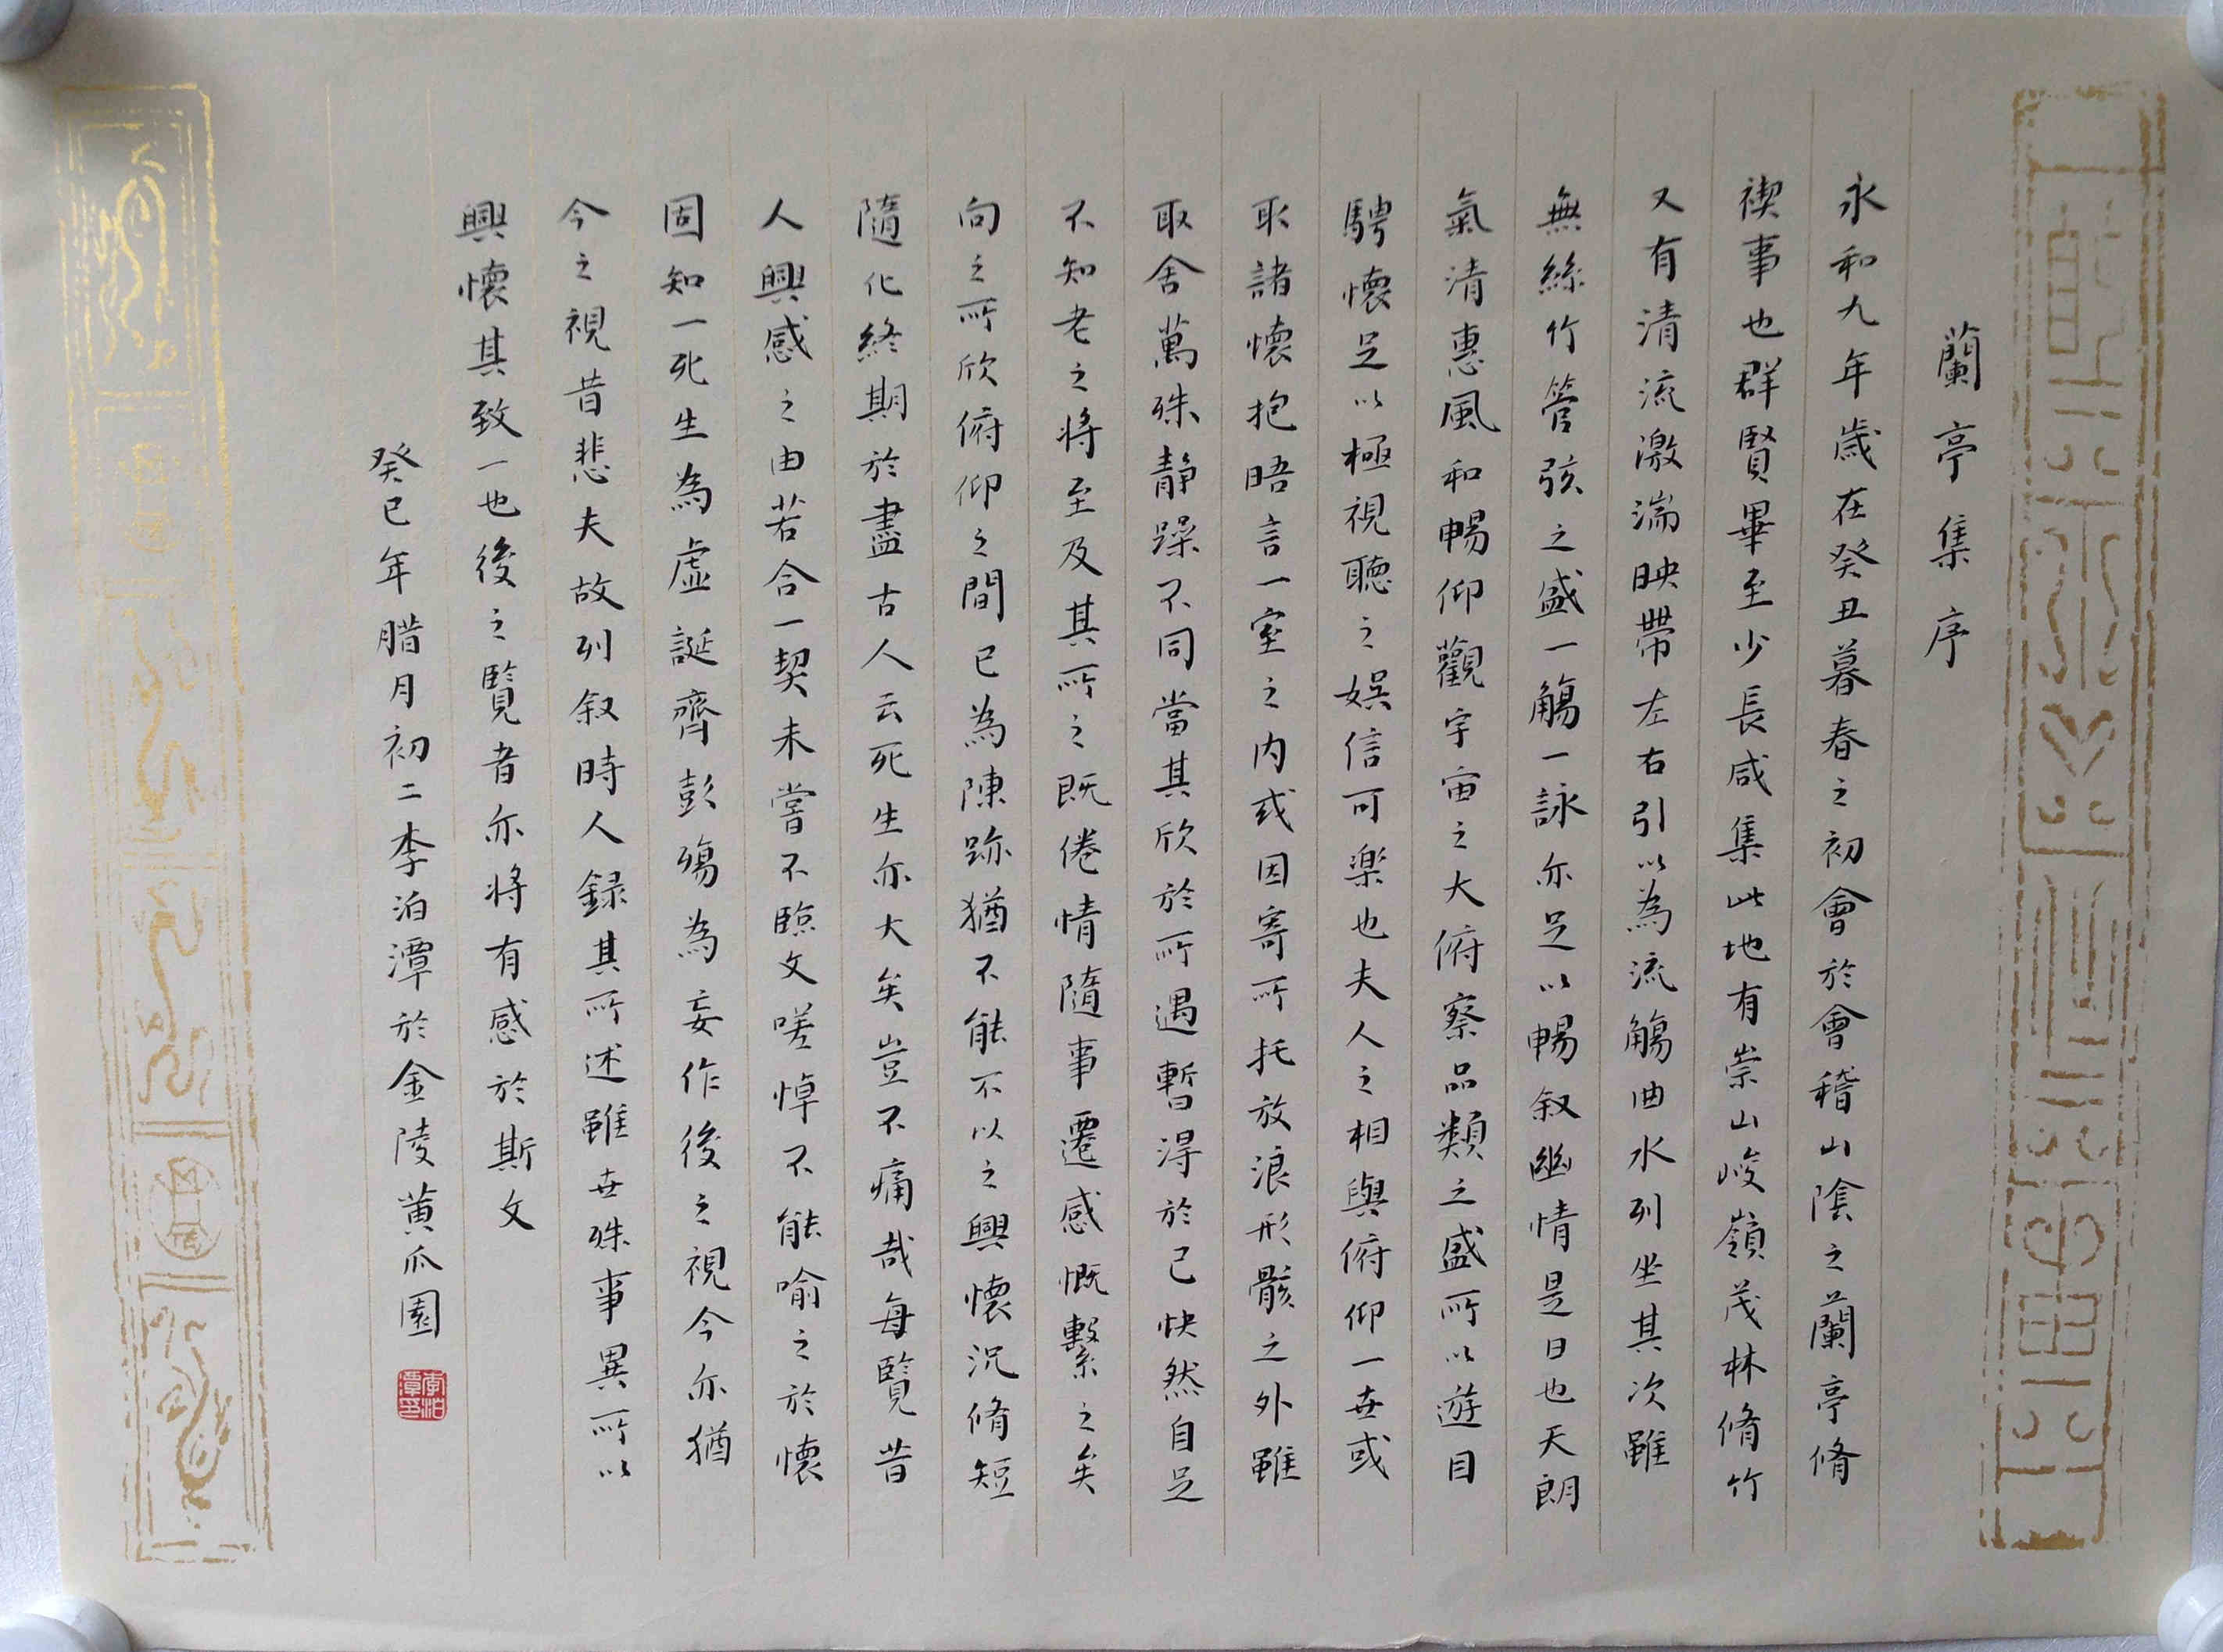 蘭亭集序
永和九年歲在癸丑暮春之初會於會稽山陰之蘭亭脩
禊事也群賢畢至少長咸集此地有崇山峻嶺茂林脩竹
又有清流激湍映帶左右引以為流觴曲水列坐其次雖
無絲竹管弦之盛一觴一詠亦足以暢叙幽情是日也天朗
氣清惠風和暢仰觀宇宙之大俯察品類之盛所以遊目
騁懷足以極視聽之娱信可樂也夫人之相與俯仰一世或
取諸懷抱晤言一室之内或因寄所托放浪形骸之外雖
取舍萬殊静躁不同當其欣於所遇暫得於己快然自足
不知老之將至及其所之既倦情隨事遷感慨繫之矣
向之所欣俯仰之間已為陳跡猶不能不以之興懷況脩短
隨化終期於盡古人云死生亦大矣豈不痛哉每覽昔
人興感之由若合一契未嘗不臨文嗟悼不能喻之於懷
固知一死生為虛誕齊彭殤為妄作後之視今亦猶
今之視昔悲夫故列叙時人録其所述雖世殊事異所以
興懷其致一也後之覽者亦將有感於斯文
癸巳年腊月初二李泊潭於金陵黄瓜園
李泊潭印